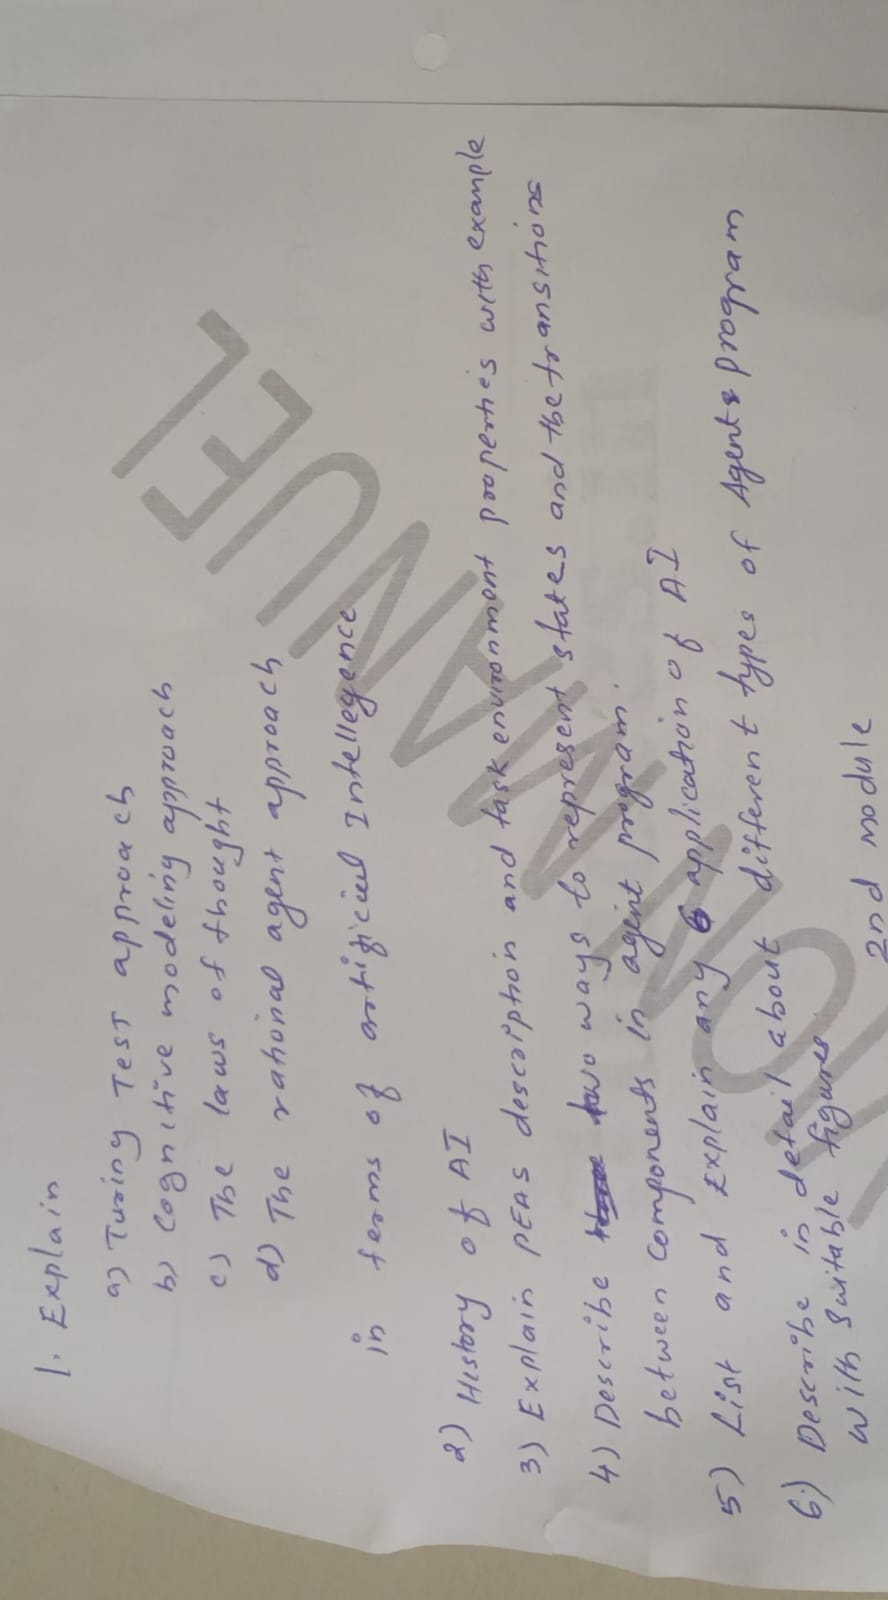 1. Explain
a) Turing TEST approach
b) Cognitive modeling approach
c) The laws of thought
d) The rational agent approach
in terms of artificial Intellegence
2) History of AI
3) Explain PEAS description and task environment properties with example
4) Describe two ways to represent states and the transitions
between components in agent program.
5) List and Explain any 6 application of AI
6) Describe in detail about different types of Agents program
with Suitable figures.
2nd module
MANUEL